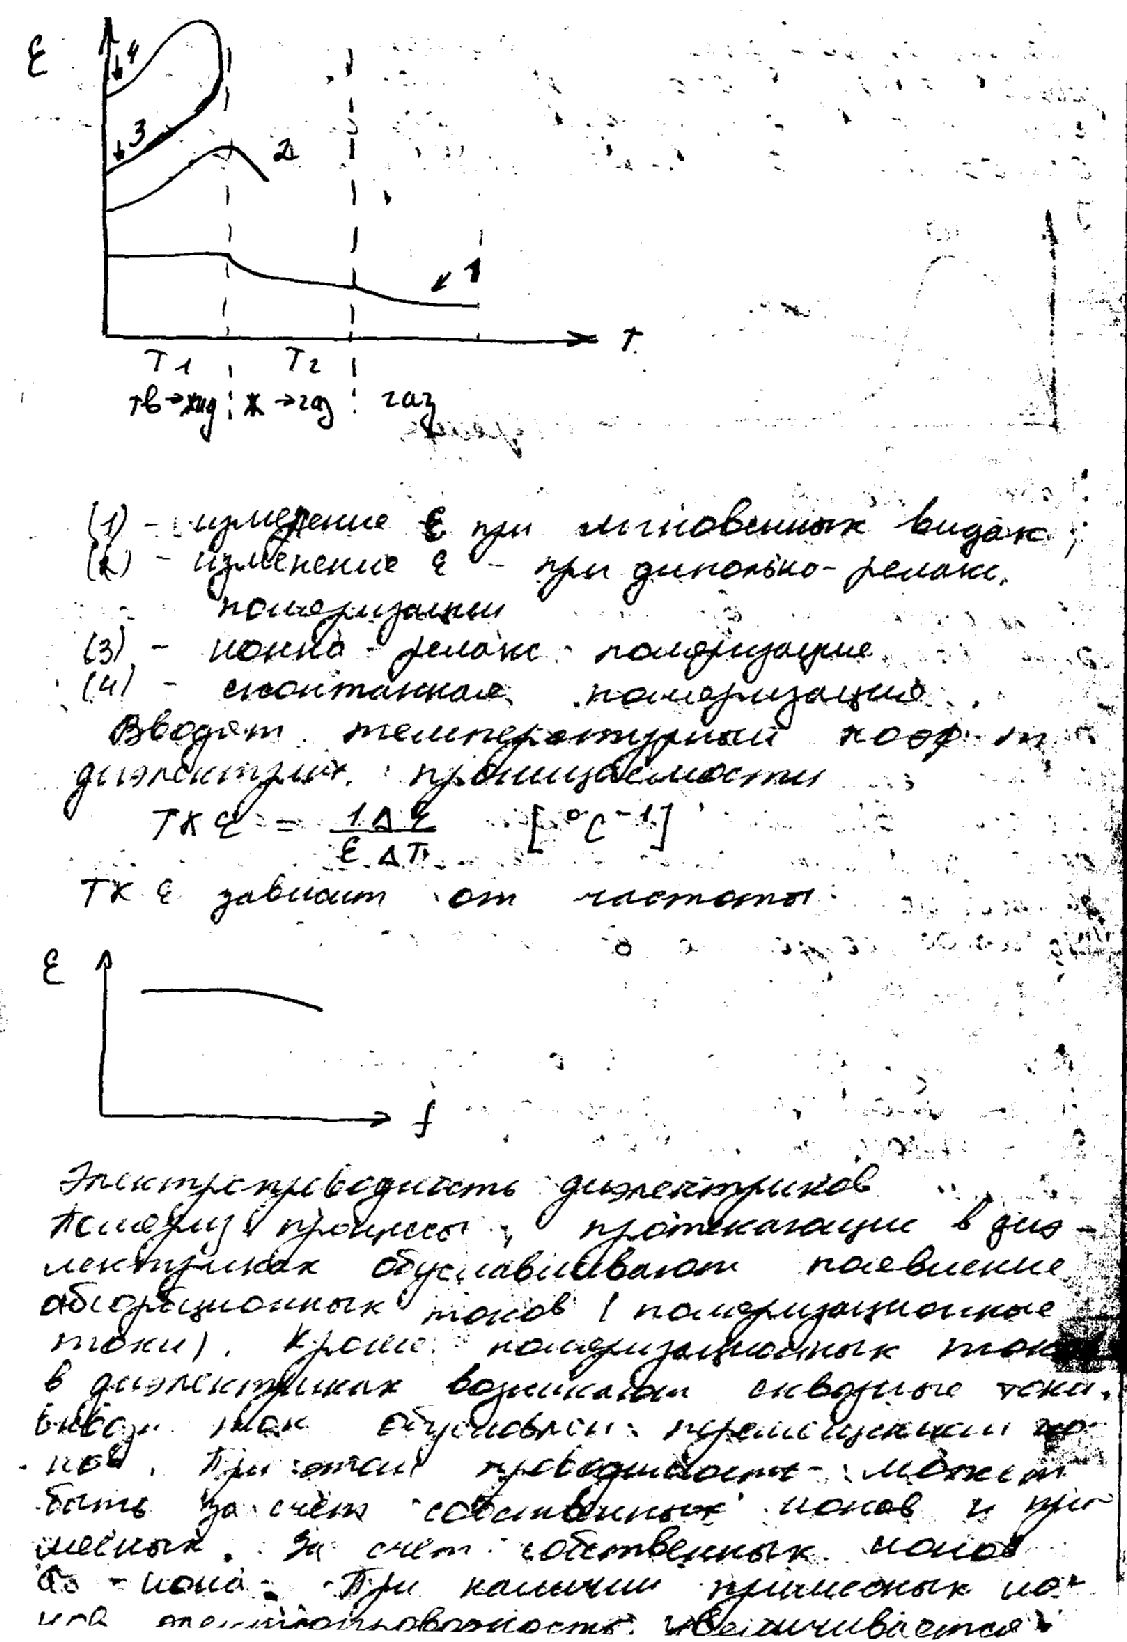 ε
4
3
2
1
T
T1 T2
тв→жид ж→газ газ
(1) - измерение ε при мгновенных видах;
(2) - изменение ε - при дипольно-релакс.
поляризации
(3) - ионно-релакс. поляризация
(4) - спонтанная поляризация.
Вводят температурный коэф-т
диэлектрич. проницаемости
TKε = 1Δε / εΔT [°C⁻¹]
TKε зависит от частоты
ε
f
Электропроводность диэлектриков
Поляриз. процессы, протекающие в диэ-
лектриках обуславливают появление
абсорбционных токов (поляризационные
токи). Кроме поляризационных токов
в диэлектриках возникают сквозные токи.
Сквозн. ток обусловлен перемещением ио-
нов. При этом проводимость может
быть за счёт собственных ионов и при-
месных. За счёт собственных ионов
- иона. При наличии примесных ио-
нов увеличивается